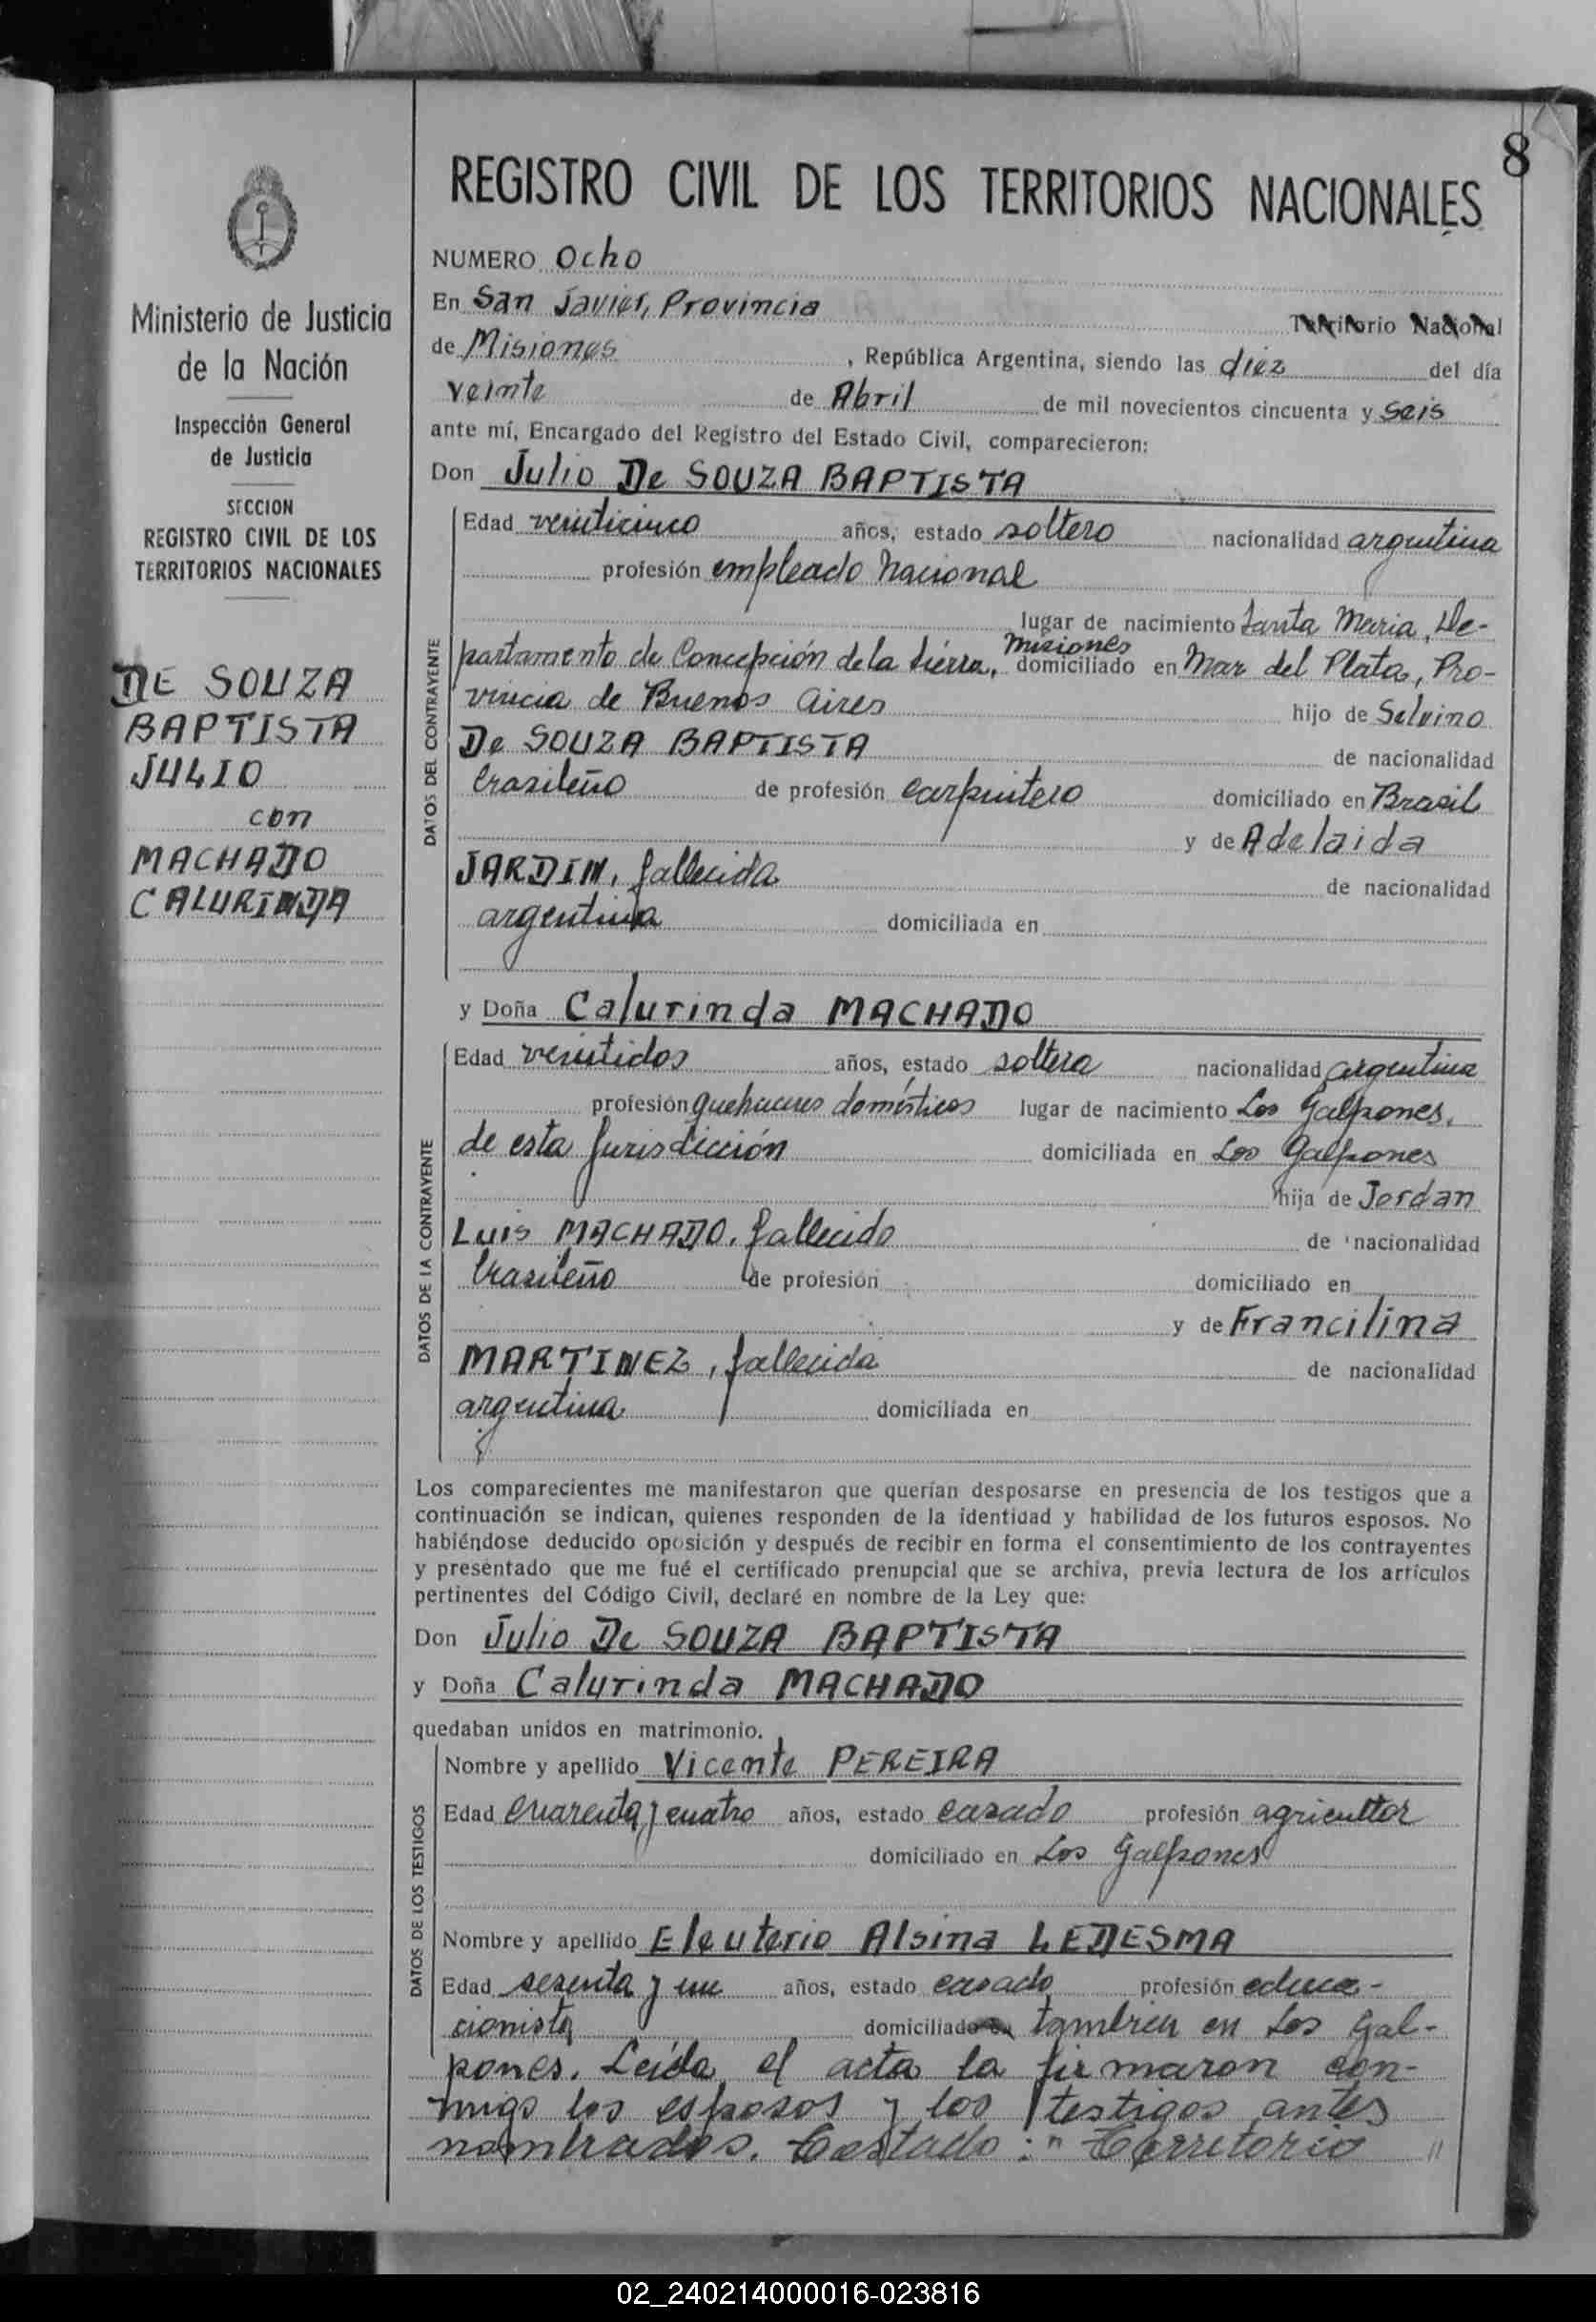 8
REGISTRO CIVIL DE LOS TERRITORIOS NACIONALES
Ministerio de Justicia
de la Nación
Inspección General
de Justicia
SECCION
REGISTRO CIVIL DE LOS
TERRITORIOS NACIONALES
DE SOUZA
BAPTISTA
JULIO
con
MACHADO
CALURINDA
NUMERO Ocho
En San Javier, Provincia Territorio Nacional
de Misiones, República Argentina, siendo las diez del día
veinte de Abril de mil novecientos cincuenta y seis
ante mí, Encargado del Registro del Estado Civil, comparecieron:
Don Julio De SOUZA BAPTISTA
DATOS DEL CONTRAYENTE
Edad veinticinco años, estado soltero nacionalidad argentina
profesión empleado Nacional
lugar de nacimiento Santa Maria, De-
partamento de Concepción de la Sierra, Misiones domiciliado en Mar del Plata, Pro-
vincia de Buenos Aires hijo de Selvino
De SOUZA BAPTISTA de nacionalidad
brasileño de profesión carpintero domiciliado en Brasil
y de Adelaida
JARDIN, fallecida de nacionalidad
argentina domiciliada en
y Doña Calurinda MACHADO
DATOS DE LA CONTRAYENTE
Edad veintidos años, estado soltera nacionalidad argentina
profesión quehaceres domésticos lugar de nacimiento Los Galpones,
de esta Jurisdicción domiciliada en Los Galpones
hija de Jordan
Luis MACHADO, fallecido de nacionalidad
brasileño de profesión domiciliado en
y de Francilina
MARTINEZ, fallecida de nacionalidad
argentina domiciliada en
Los comparecientes me manifestaron que querían desposarse en presencia de los testigos que a
continuación se indican, quienes responden de la identidad y habilidad de los futuros esposos. No
habiéndose deducido oposición y después de recibir en forma el consentimiento de los contrayentes
y presentado que me fué el certificado prenupcial que se archiva, previa lectura de los artículos
pertinentes del Código Civil, declaré en nombre de la Ley que:
Don Julio De SOUZA BAPTISTA
y Doña Calurinda MACHADO
quedaban unidos en matrimonio.
DATOS DE LOS TESTIGOS
Nombre y apellido Vicente PEREIRA
Edad cuarenta y cuatro años, estado casado profesión agricultor
domiciliado en Los Galpones
Nombre y apellido Eleuterio Alsina LEDESMA
Edad sesenta y un años, estado casado profesión educa-
cionista domiciliado en tambien en Los Gal-
pones. Leída el acta la firmaron con-
migo los esposos y los testigos antes
nombrados. Testado: "Territorio "
02_240214000016-023816